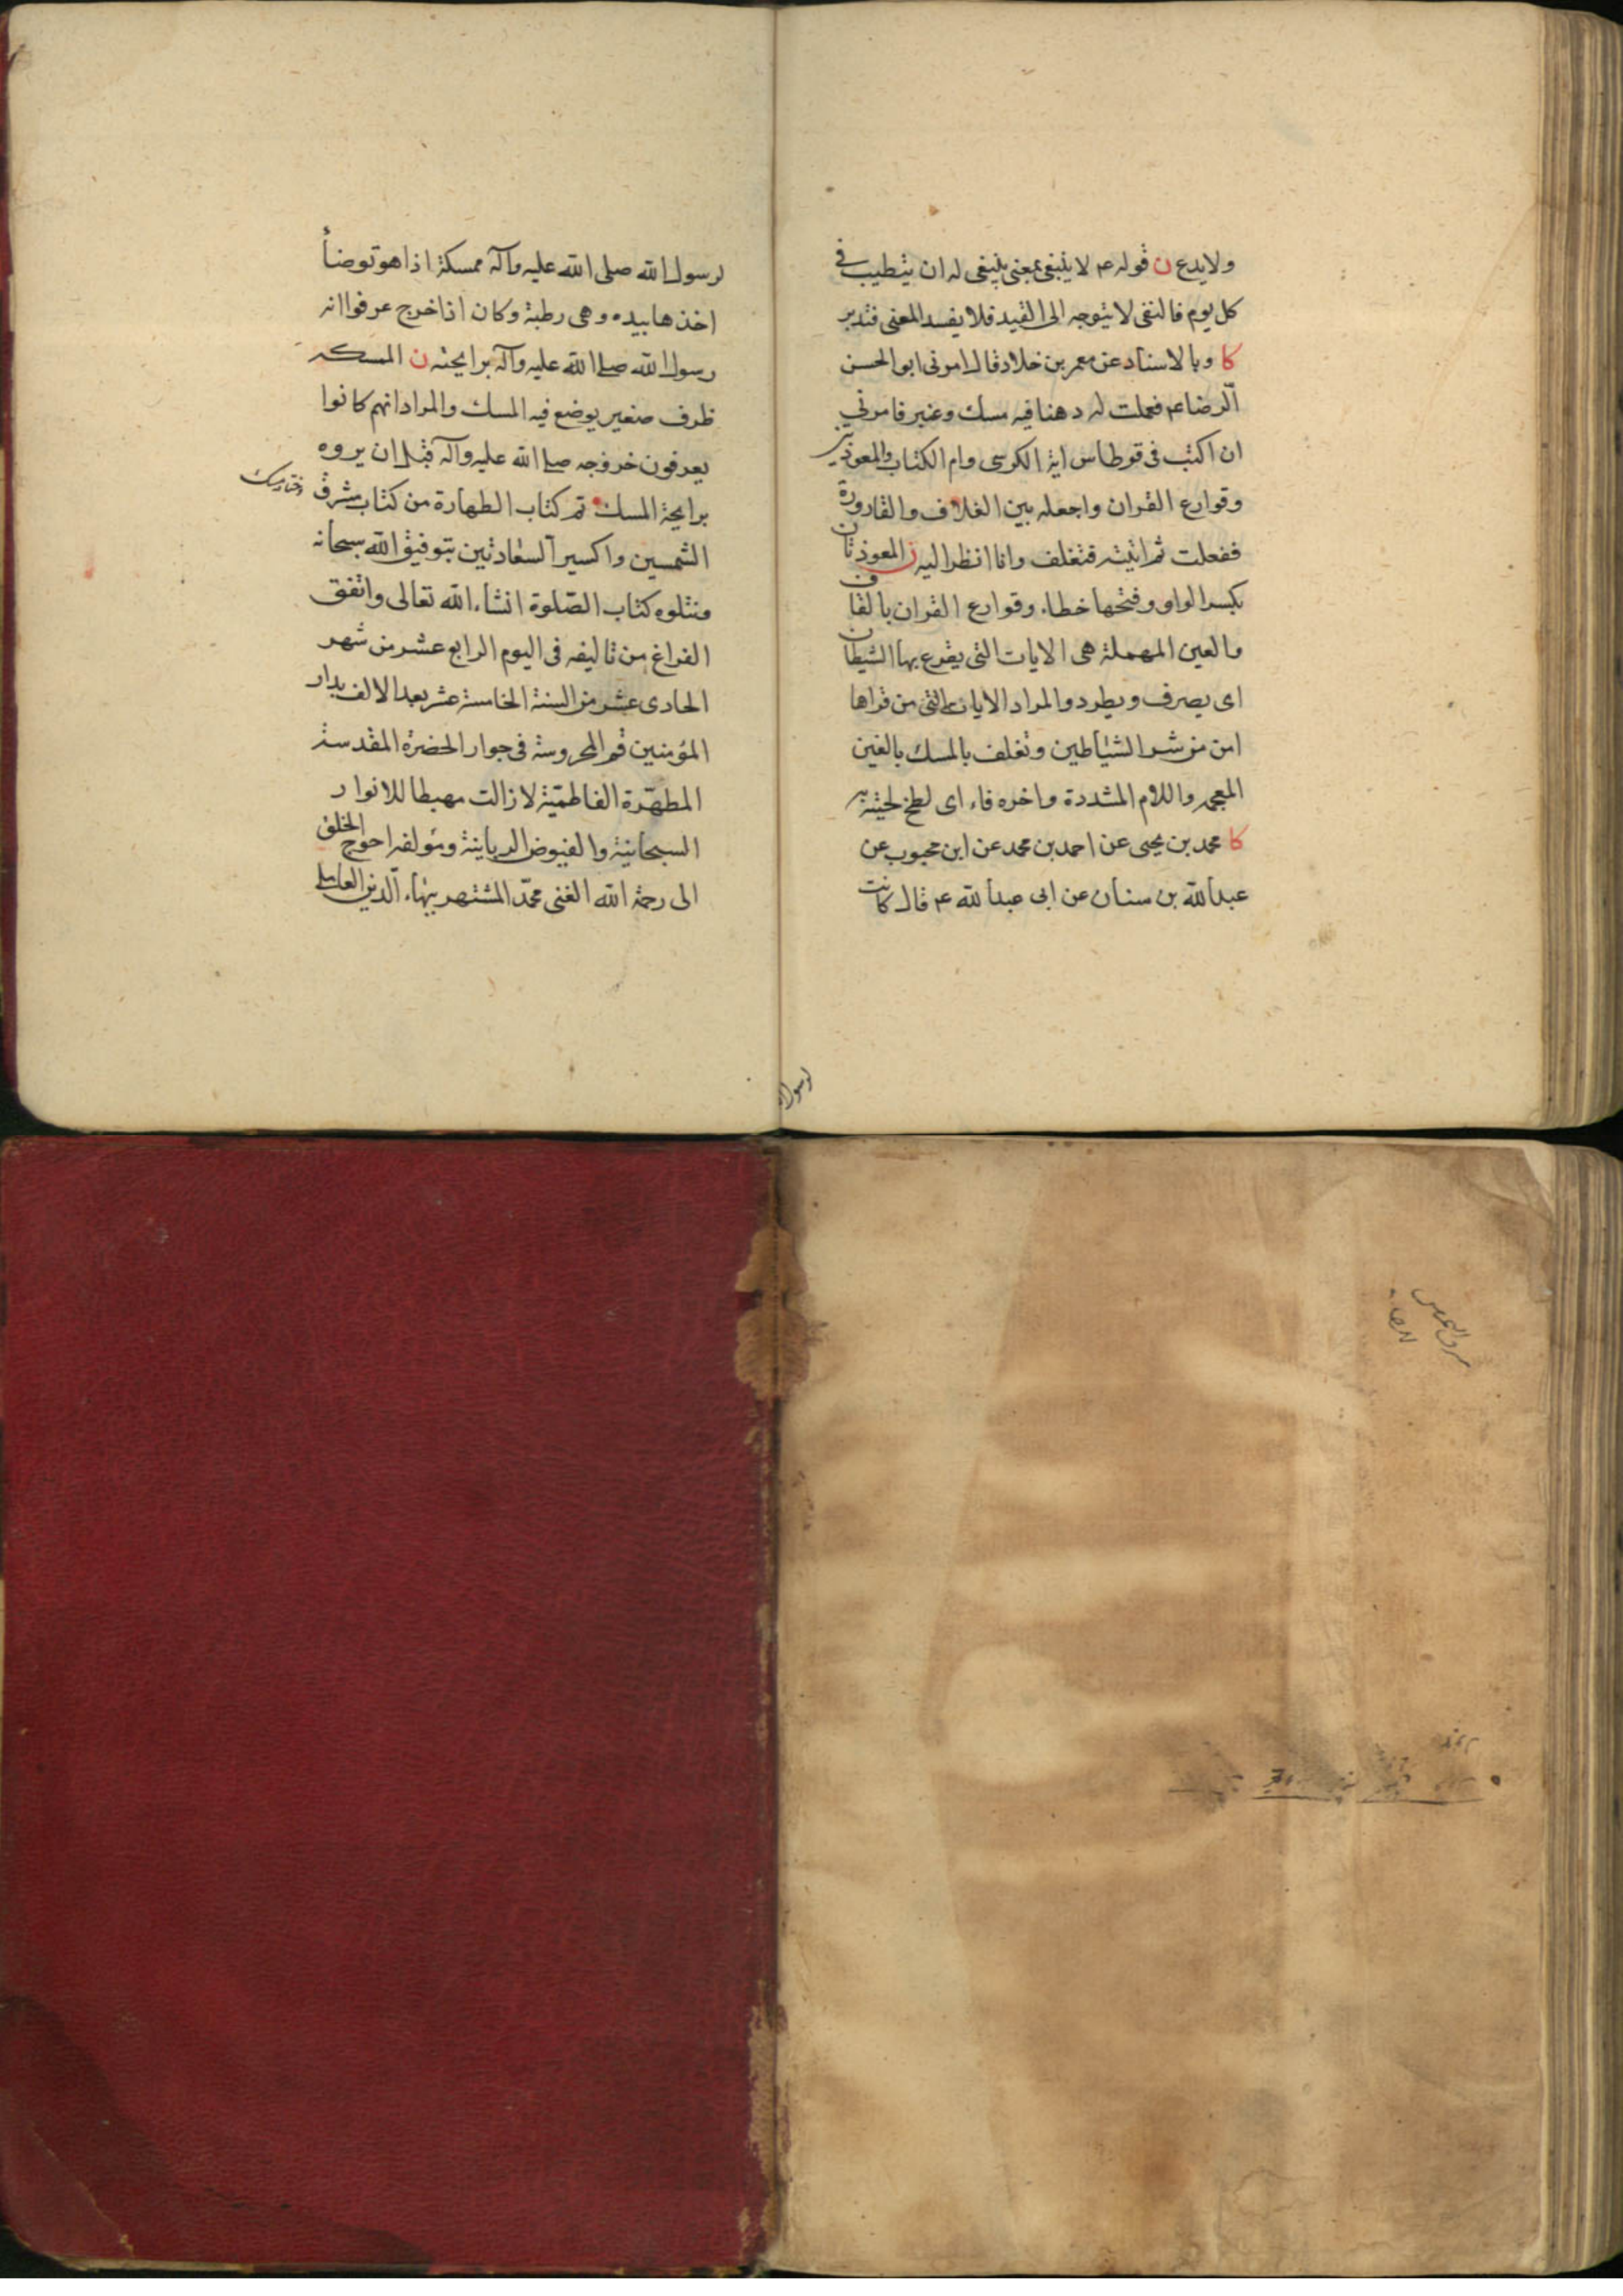 ولا يدع ن قوله ع لا ينبغى بمعنى ينبغى له ان يتطيب فى
كل يوم فالنفى لا يتوجه الى القيد فلا يفسد المعنى فتدبر
كا وبالاسناد عن معمر بن خلاد قال امرنى ابو الحسن
الرضا ع فعملت له دهنا فيه مسك وعنبر فامرنى
ان اكتب فى قرطاس اية الكرسى وام الكتاب والمعوذتين
وقوارع القران واجعله بين الغلاف والقارورة
ففعلت ثم اتيته فتغلف وانا انظر اليه ن المعوذتان
بكسر الواو وفتحها خطاء وقوارع القران بالقاف
والعين المهملة هى الايات التى يقرع بها الشيطان
اى يصرف ويطرد والمراد الايات التى من قراها
امن من شر الشياطين وتغلف بالمسك بالغين
المعجمه واللام المشددة واخره فاء اى لطخ لحيته به
كا محمد بن يحيى عن احمد بن محمد عن ابن محبوب عن
عبد الله بن سنان عن ابى عبد الله ع قال كانت
لرسول الله
لرسول الله صلى الله عليه وآله ممسكة اذا هو توضأ
اخذها بيده وهى رطبة وكان اذا خرج عرفوا انه
رسول الله صلى الله عليه وآله برايحته ن الممسكه
ظرف صغير يوضع فيه المسك والمراد انهم كانوا
يعرفون خروجه صلى الله عليه وآله قبل ان يروه
برايحة المسك تم كتاب الطهارة من كتاب مشرق
ختامه مسك
الشمسين واكسير السعادتين بتوفيق الله سبحانه
ونتلوه كتاب الصلوة انشاء الله تعالى واتفق
الفراغ من تاليفه فى اليوم الرابع عشر من شهر
الحادى عشر من السنة الخامسة عشر بعد الالف بدار
المؤمنين قم المحروسة فى جوار الحضرة المقدسة
المطهرة الفاطمية لا زالت مهبطا للانوار
السبحانية والفيوض الربانية ومؤلفه احوج الخلق
الى رحمة الله الغنى محمد المشتهر ببهاء الدين العاملى